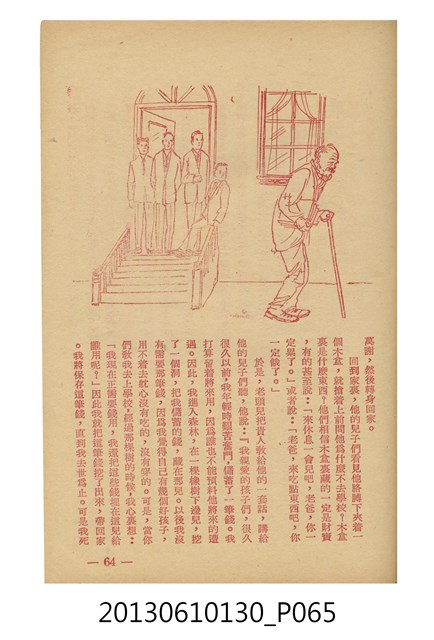 萬謝，然後轉身回家。
回到家裏，他的兒子們看見他胳膊下夾着一
個木盒，就搶着上前問他爲什麼不去學校？木盒
裏是什麼東西？他們相信木盒裏藏的一定是財寶
，有的甚至說：「來休息一會兒吧，老爸，你一
定累了。」或者說：「老爸，來吃點東西吧，你
一定餓了。」
於是，老頭兒把貴人敎給他的一套話，講給
他的兒子們聽，他說：「我親愛的孩子們，很久
很久以前，我年輕時艱苦奮鬥，儲蓄了一筆錢。我
打算留着將來用，因爲誰也不能預料他將來的遭
遇。因此，我進入森林，在一棵橡樹下邊兒，挖
了一個洞，把我儲蓄的錢，藏在那兒。以後我沒
有需要那筆錢，因爲我覺得自己有幾個好孩子，
用不着去躭心沒有吃的，沒有穿的。可是，當你
們敎我去上學校，經過那棵樹的時候，我心裏想：
「我現在正需要錢用，我還把這些錢埋在這兒給
誰用呢？」因此我就把這筆錢挖了出來，帶回家
。我將保存這筆錢，直到我去世爲止。可是我死
— 64 —
20130610130_P065